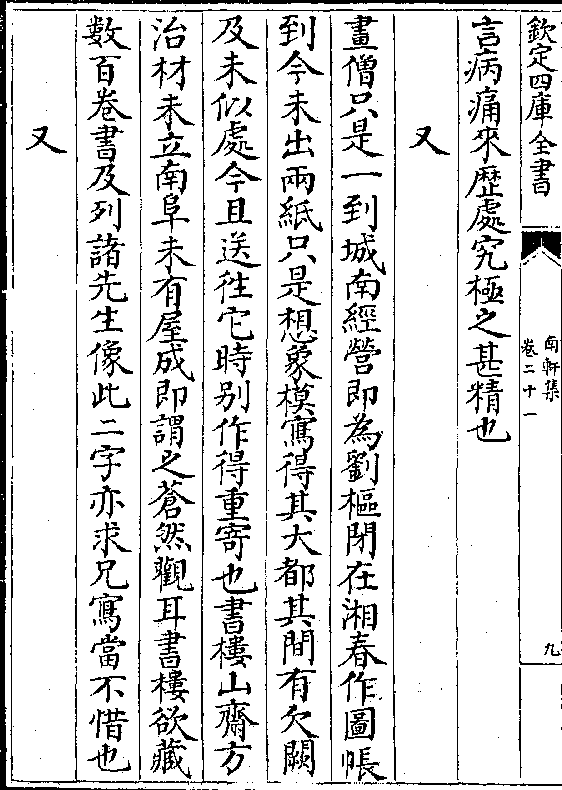 欽定四庫全書
南軒集
卷二十一
九
言病痛來歴處究極之甚精也
又
畫僧只是一到城南經營即為劉樞閉在湘春作圖帳
到今未出兩紙只是想象模寫得其大都其間有欠闕
及未似處今且送徃它時别作得重寄也書樓山齋方
治材未立南阜未有屋成即謂之蒼然觀耳書樓欲藏
數百卷書及列諸先生像此二字亦求兄寫當不惜也
又